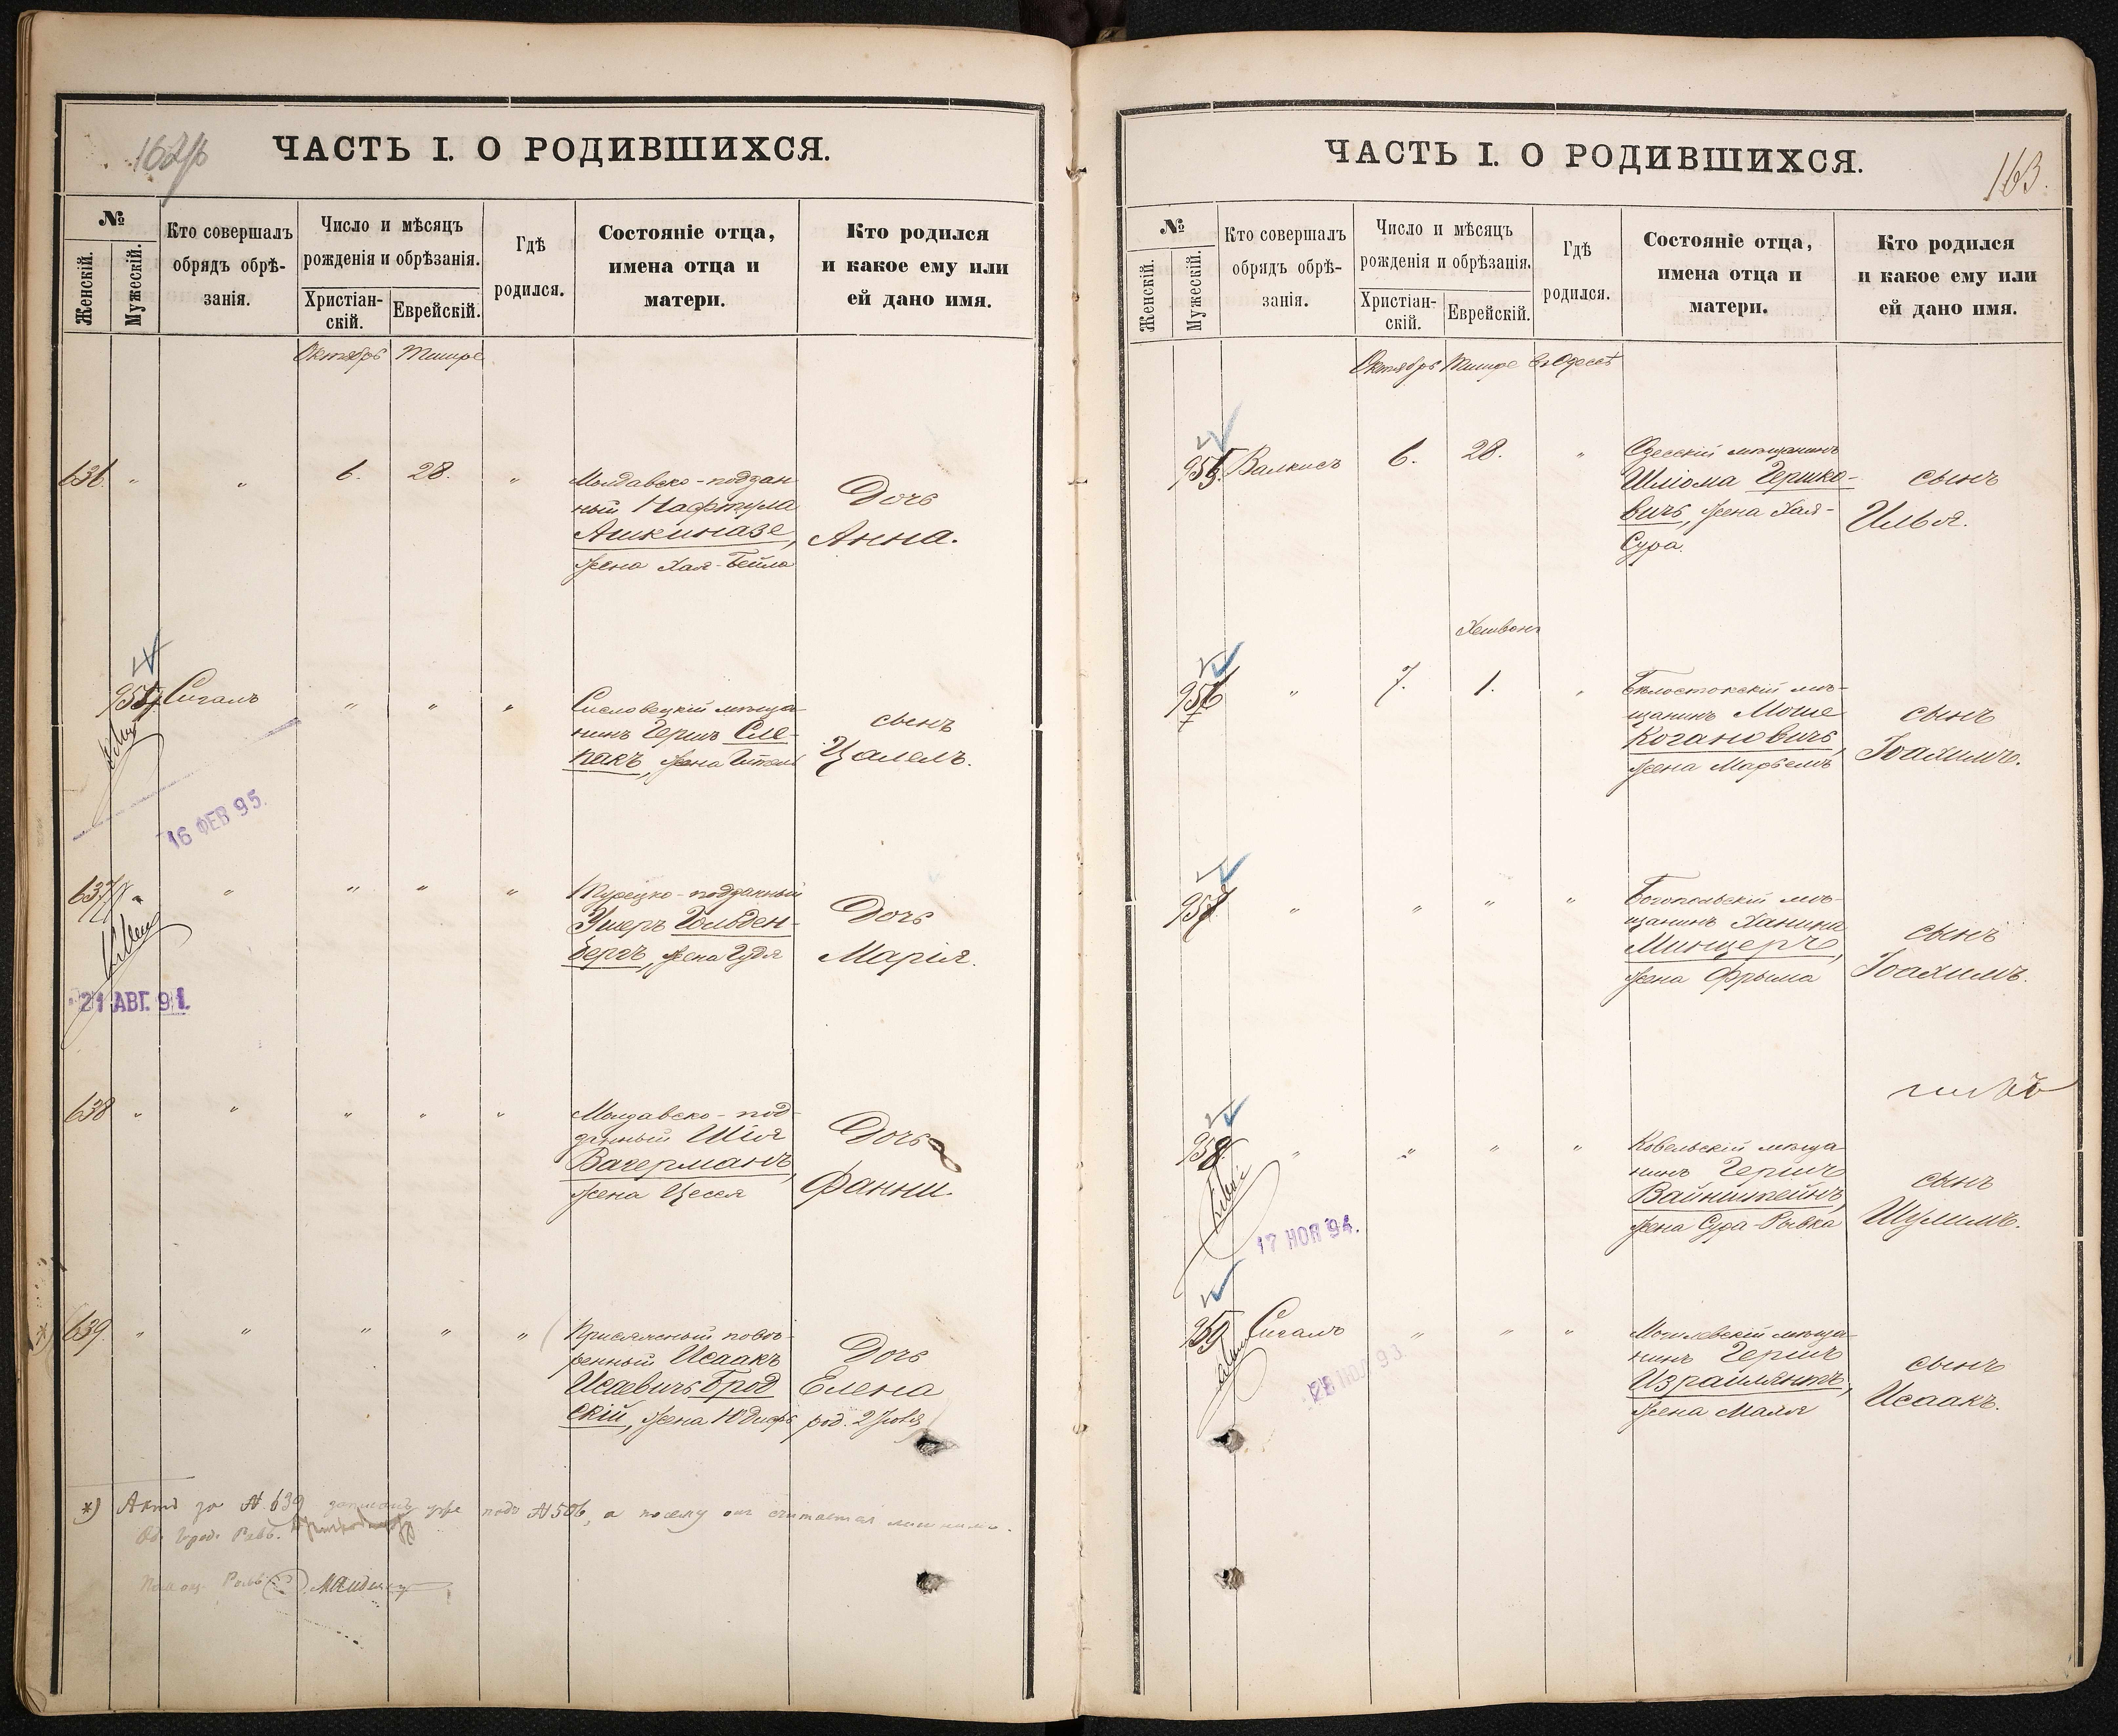 162/б
ЧАСТЬ I. О РОДИВШИХСЯ.
№
Женскій.
Мужескій.
Кто совершалъ
обрядъ обрѣ-
занія.
Число и мѣсяцъ
рожденія и обрѣзанія.
Христіан-
скій.
Еврейскій.
Гдѣ
родился.
Состояніе отца,
имена отца и
матери.
Кто родился
и какое ему или
ей дано имя.
Октябрь Тишре
636. " " 6. 28. "
Молдавско-поддан
ный Нафтула
Ашкиназе,
жена Хая-Бейла
Дочь
Анна.
954 Сигалъ " " "
мѣща-
нинъ Гершъ Сле-
пакъ, жена
сынъ
Цалелъ.
16 ФЕВ 95.
637 " " " " "
Турецко-подданный
Ушеръ Гольден-
бергъ, жена Гудя
Дочь
Марія.
21 АВГ. 91.
638 " " " " "
Молдавско-под-
данный Шія
Вагерманъ,
жена Цеся
Дочь
Фанни.
*) 639. " " " " "
Присяжный повѣ-
ренный Исаакъ
Исаевичъ Брод
скій, жена Юдифь
Дочь
Елена
род. 2 Іюля
*) Актъ за № 639 записанъ уже подъ № 506, а посему онъ считается лишнимъ.
Од. Город. Равв.
Помощ. Равв.
163.
ЧАСТЬ I. О РОДИВШИХСЯ.
№
Женскій.
Мужескій.
Кто совершалъ
обрядъ обрѣ-
занія.
Число и мѣсяцъ
рожденія и обрѣзанія.
Христіан-
скій.
Еврейскій.
Гдѣ
родился.
Состояніе отца,
имена отца и
матери.
Кто родился
и какое ему или
ей дано имя.
Октябрь Тишре въ Одессѣ
955. Валкисъ 6. 28. "
Одесскій мѣщанинъ
Шліома Гершко-
вичъ, жена Хая-
Сура.
сынъ
Илья.
Хешванъ
956 " 7. 1. "
Бѣлостокскій мѣ-
щанинъ Моше
Когановичъ,
жена Марьемъ
сынъ
Іоахимъ.
957 " " " "
Богопольскій мѣ-
щанинъ Ханина
Минцеръ,
жена Фрыма
сынъ
Іоахимъ.
958. " " " "
Ковельскій мѣща
нинъ Гершъ
Вайнштейнъ,
жена Сура-Рывка
сынъ
Шулимъ.
17 НОЯ 94.
959 Сигалъ " " "
Могилевскій мѣща-
нинъ Гершъ
Израилянтъ,
жена Маля
сынъ
Исаакъ.
28 НОЯ 93.